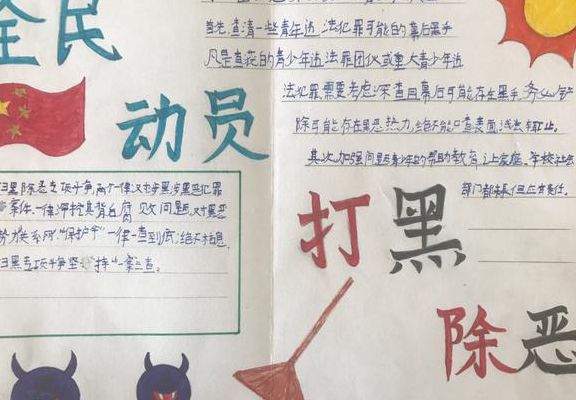 全民
动员
首先,查清一些青年违法犯罪可能的幕后黑手
凡是查获的青少年违法罪团伙或重大青少年违
法犯罪,需要考虑深查回幕后可能存在黑手,务必铲
除可能存在黑恶热力,绝不能只查表面,浅尝辄止。
其次,加强问题青少年的帮助教育,让家庭、学校社会
部门都来但应当责任。
扫黑除恶专项斗争,两个一律:对涉黑涉恶犯罪
案件,一律深挖其背后腐败问题,对黑恶
势力关系网"保护伞"一律一查到底,绝不姑息,
扫黑专项斗争坚持"一案三查。
打黑
除恶